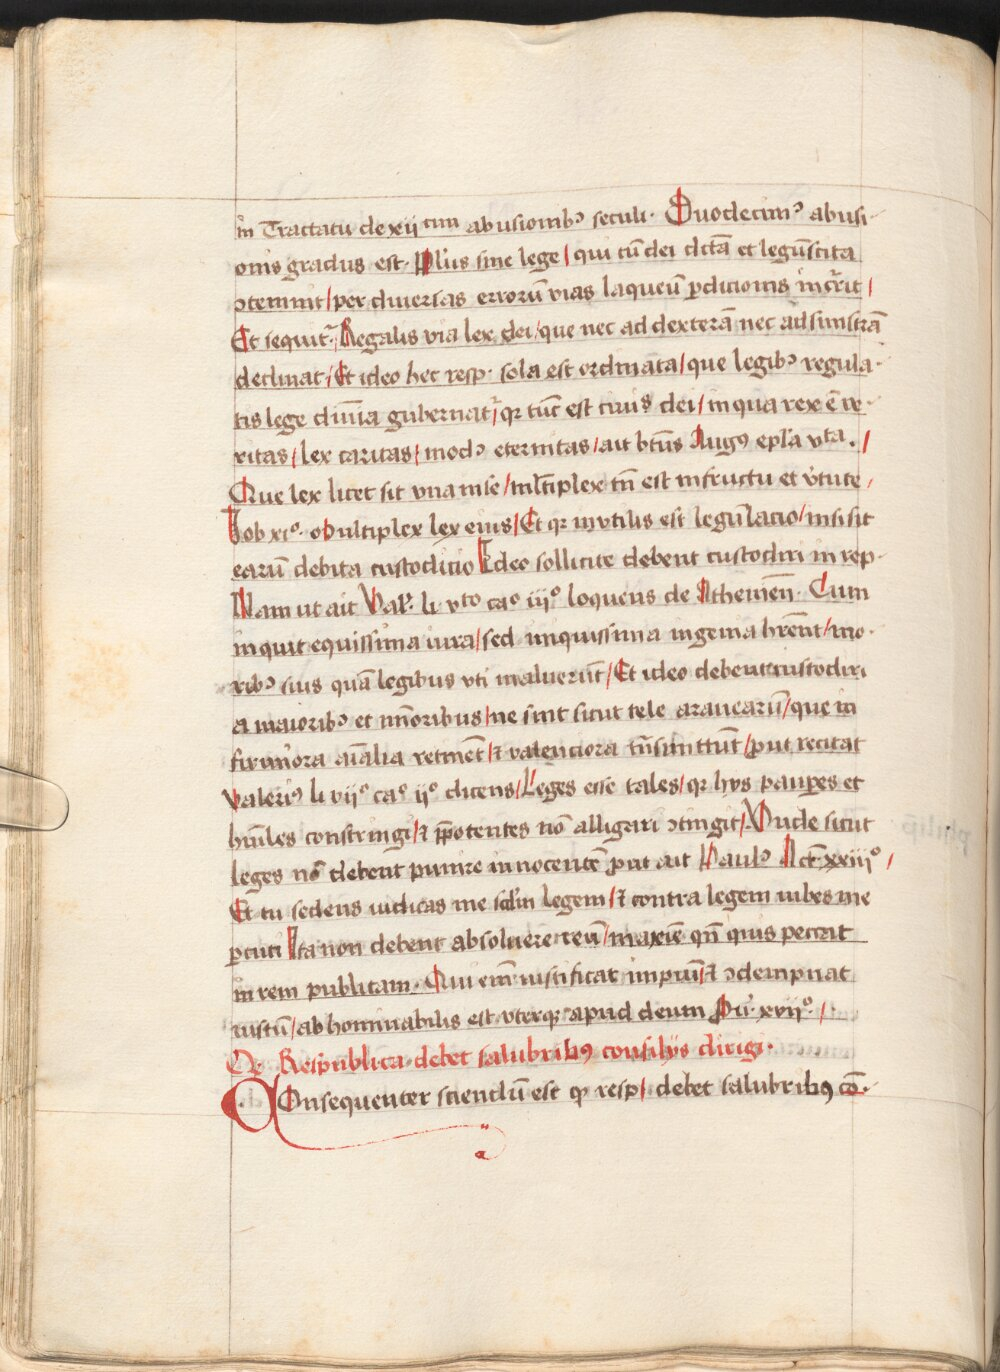 in Tractatu de xij cim abusionibꝰ seculi · Duodecimꝰ abusi
onis gradus est · Pl'us sine lege / qui cū dei dc̄tā et legū scita
ↄtemnit / per diuersas errorū vias laqueū ꝑdicionis incꝛ̄rit /
Et sequit᷑ / Regalis via lex dei / que nec ad dexterā nec ad sinistrā
declinat / Et ideo hec resp · sola est ordinata / que legibꝰ regula
tis lege diuīa gubernat᷑ / qꝛ tūc est ciuis dei / in qua rex ē ve
ritas / lex caritas / modꝰ eternitas / ait bt̄us Augꝰ epl̄a vta · /
Que lex licet sit vna in se / ml̄tiplex tn̄ est in fructu et v̄tute /
Iob xiº · Multiplex lex eius / Et qꝛ invtilis est legūlacio / nisi sit
earū debita custodicio Ideo sollicite debent custodiri in rep
Nam ut ait Val'. li vto caº iijº loquens de Athenien̄ · Cum
inquit equissima iura / sed iniquissima ingenia hr̄ent / mo
ribꝰ suis quā legibus vti maluerūt / Et ideo debent custodiri
a maioribꝰ et mīoribus / ne sint sicut tele aranearū / que in
firmiora aīalia retinēt / ⁊ valenciora tn̄smittūt / ꝓut recitat
Valeriꝰ li vijº caº ijº dicens / Leges esse tales / qꝛ hys pauꝑes et
hūiles constringi / ⁊ p̄potentes nō alligari ↄtingit / Unde sicut
leges nō debent punire innocentē ꝓut ait Paulꝰ Act̄ xxiijº /
Et tu sedens iudicas me scd̄m legem / ⁊ contra legem iubes me
ꝑcuti Ita non debent absoluere reū / maxīe qn̄ quis peccat
in rem publicam · Qui em̄ iustificat impiū / ⁊ ↄdempnat
iustū / abhominabilis est vterqꝫ apud deum Pū · xvijº · /
Qꝫ Respublica debet salubribꝰ consilijs dirigi ·
Consequenter sciendū est qꝫ resp / debet salubribꝰ cō